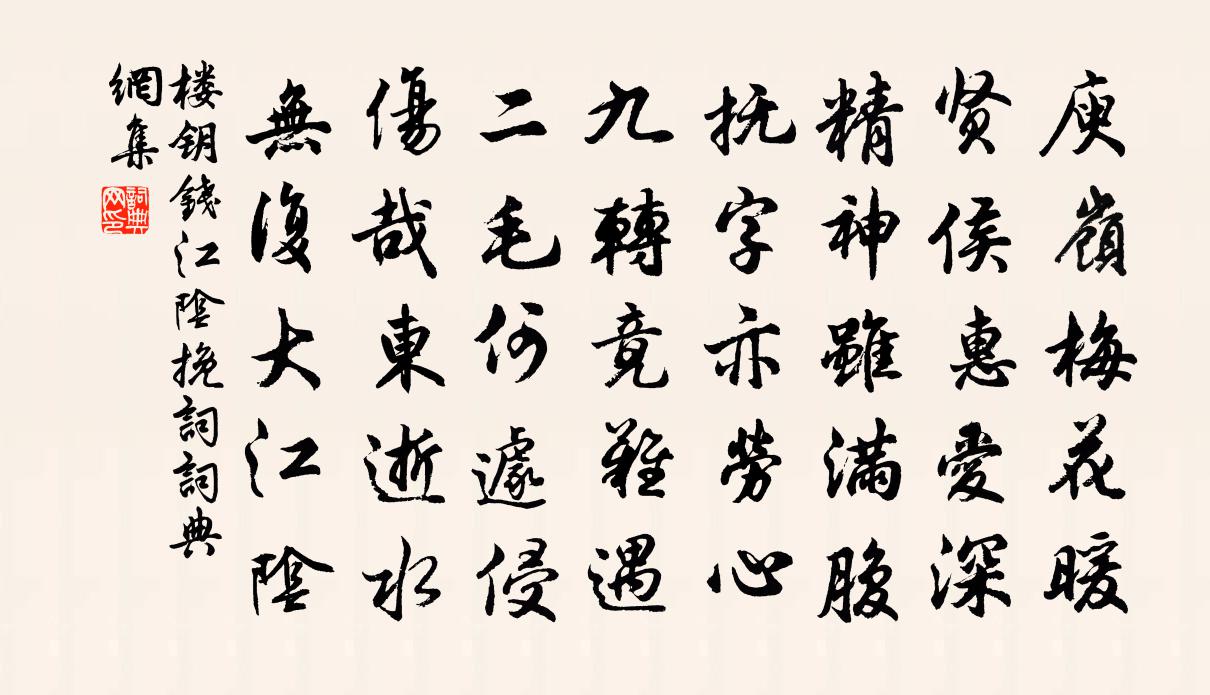 庾嶺梅花暖
贤侯惠愛深
精神雖滿腹
抚字亦勞心
九轉竟難遇
二毛何遽侵
傷哉東逝水
無復大江陰
楼钥錢江陰挽詞詞典
網集
詞典
网印